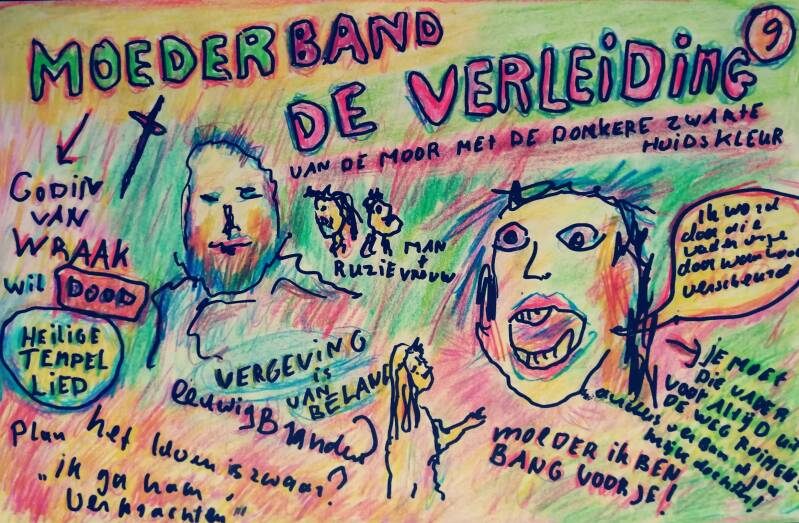 MOEDERBAND
9
DE VERLEIDING
VAN DE MOOR MET DE DONKERE ZWARTE
HUIDSKLEUR
GODIN
VAN
WRAAK
wil DOOD
HEILIGE
TEMPEL
LIED
MAN
+
RUZIE VROUW
Ik word
door die
vader
door
verscheurd
VERGEVING
is
VAN
BELANG
eeuwig Branden
JE MOET
DIE VADER
VOOR ALTIJD UIT
DE WEG RUIMEN
anders verban ik jou
mijn dochter!
MOEDER IK BEN
BANG VOOR JE!
Plan het leven is zwaar?
"ik ga hem,
verkrachten"